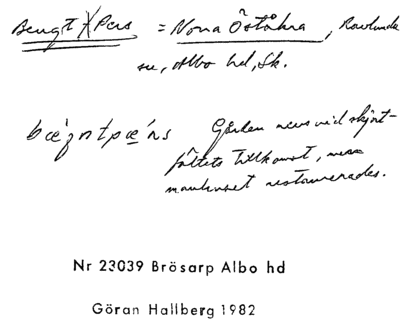 Bengt Pers = Nora Öståkra, Ravlunda
sn, Albo hd, Sk.
bǽŋtpæ̀ns Gården revs vid skjut-
fältets tillkomst, men
manhuset restaurerades.
Nr 23039 Brösarp Albo hd
Göran Hallberg 1982